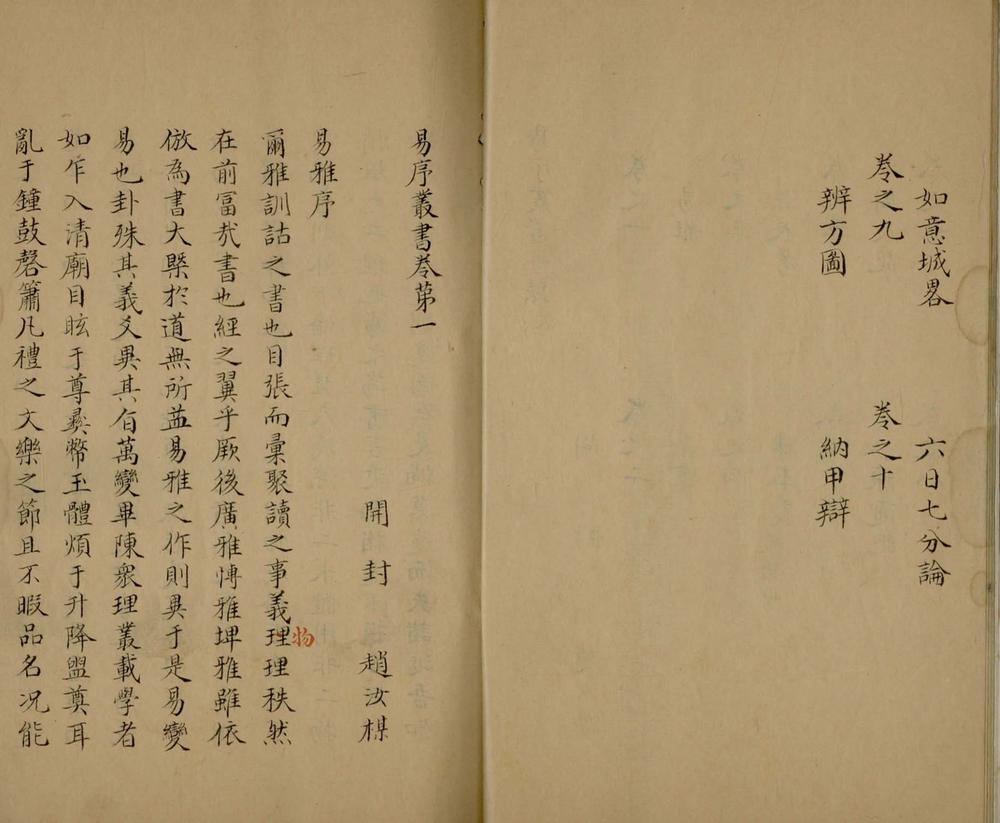 如意城畧　六日七分論
卷之九　卷之十
辨方圖　納甲辯
易序叢書卷第一
開封　趙汝楳
易雅序
爾雅訓詁之書也目張而彙聚讀之事義理理秩然
物
在前冨㢤書也經之翼乎厥後廣雅博雅埤雅雖依
倣為書大槩於道無所益易雅之作則異于是易變
易也卦殊其義爻異其旨萬變畢陳衆理叢載學者
如乍入清廟目眩于尊彞幣玉體煩于升降盥奠耳
亂于鐘鼓磬簫凡禮之文樂之節且不暇品名况能